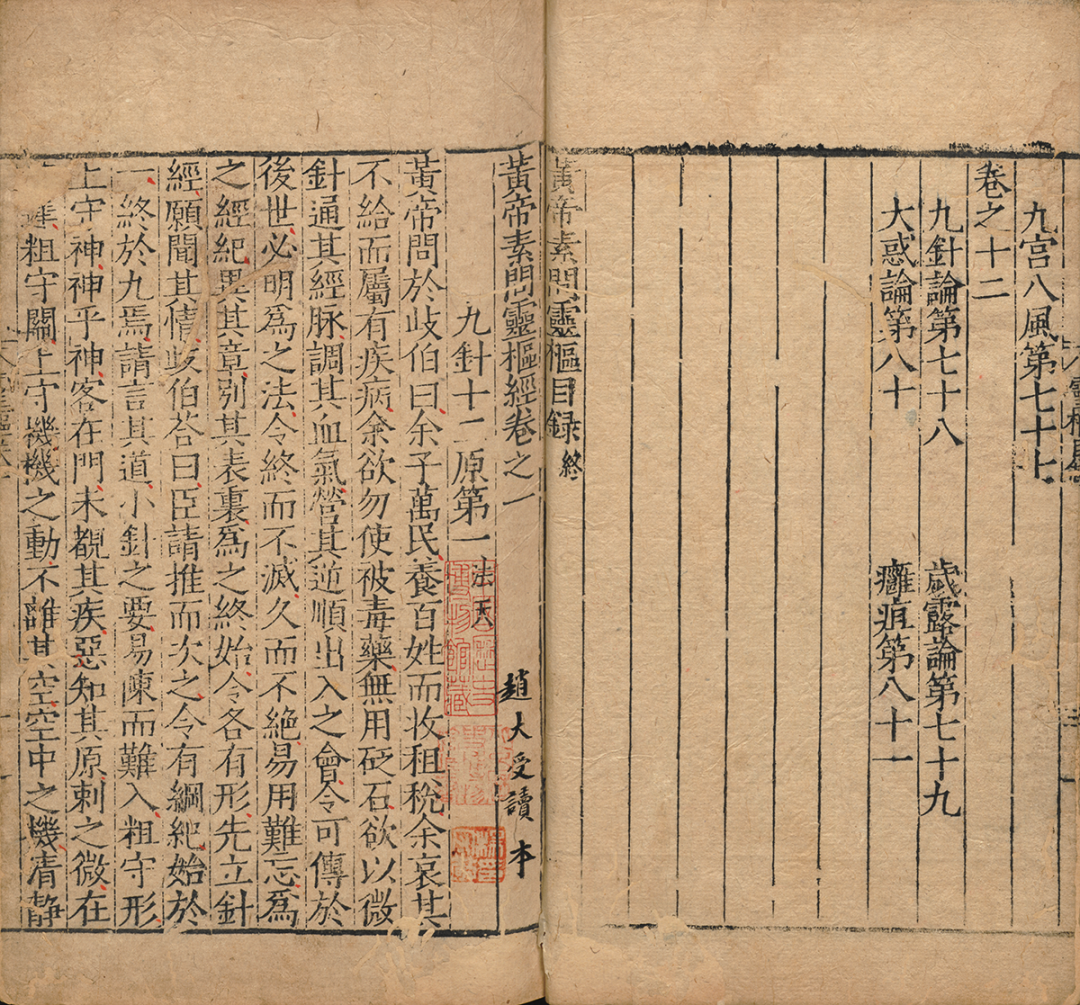 九宮八風第七十七
卷之十二
九針論第七十八 歲露論第七十九
大惑論第八十 癰疽第八十一
黃帝素問靈樞目録終
黃帝素問靈樞經卷之一 趙大受讀本
九針十二原第一 法天
黃帝問於歧伯曰余子萬民養百姓而收租稅余哀其
不給而屬有疾病余欲勿使被毒藥無用砭石欲以微
針通其經脉調其血氣營其逆順出入之會令可傳於
後世必明爲之法令終而不滅久而不絶易用難忘爲
之經紀異其章别其表裏爲之終始令各有形先立針
經願聞其情歧伯荅曰臣請推而次之令有綱紀始於
一終於九焉請言其道小針之要易陳而難入粗守形
上守神神乎神客在門未覩其疾惡知其原刺之微在
粗守關上守機機之動不離其空空中之機清静